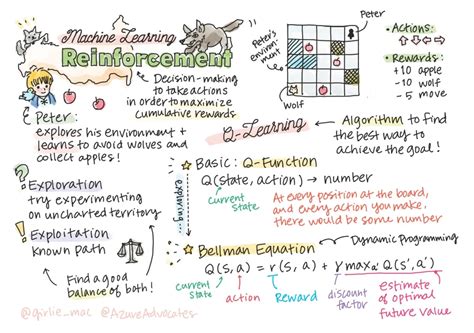 Machine Learning
Reinforcement
Decision-making
to take actions
in order to maximize
cumulative rewards
Peter
explores his environment +
learns to avoid wolves and
collect apples!
Exploration
try experimenting
on uncharted territory
Exploitation
known path
Find a good
balance of both!
@girlie_mac @AzureAdvocates
Peter's
environment
Peter
Wolf
• Actions:
⇧⇩⇦⇨
• Rewards:
+10 apple
-10 wolf
-5 move
Q-Learning
Algorithm to find
the best way to
achieve the goal!
exploring...
Basic: Q-Function
Q(state, action) → number
current
state
At every position at the board,
and every action you make,
there would be some number
Bellman Equation
Dynamic Programming
Q(s, a) = r(s, a) + γ max a' Q(s', a')
current
state
action
Reward
discount
factor
estimate
of optimal
future value